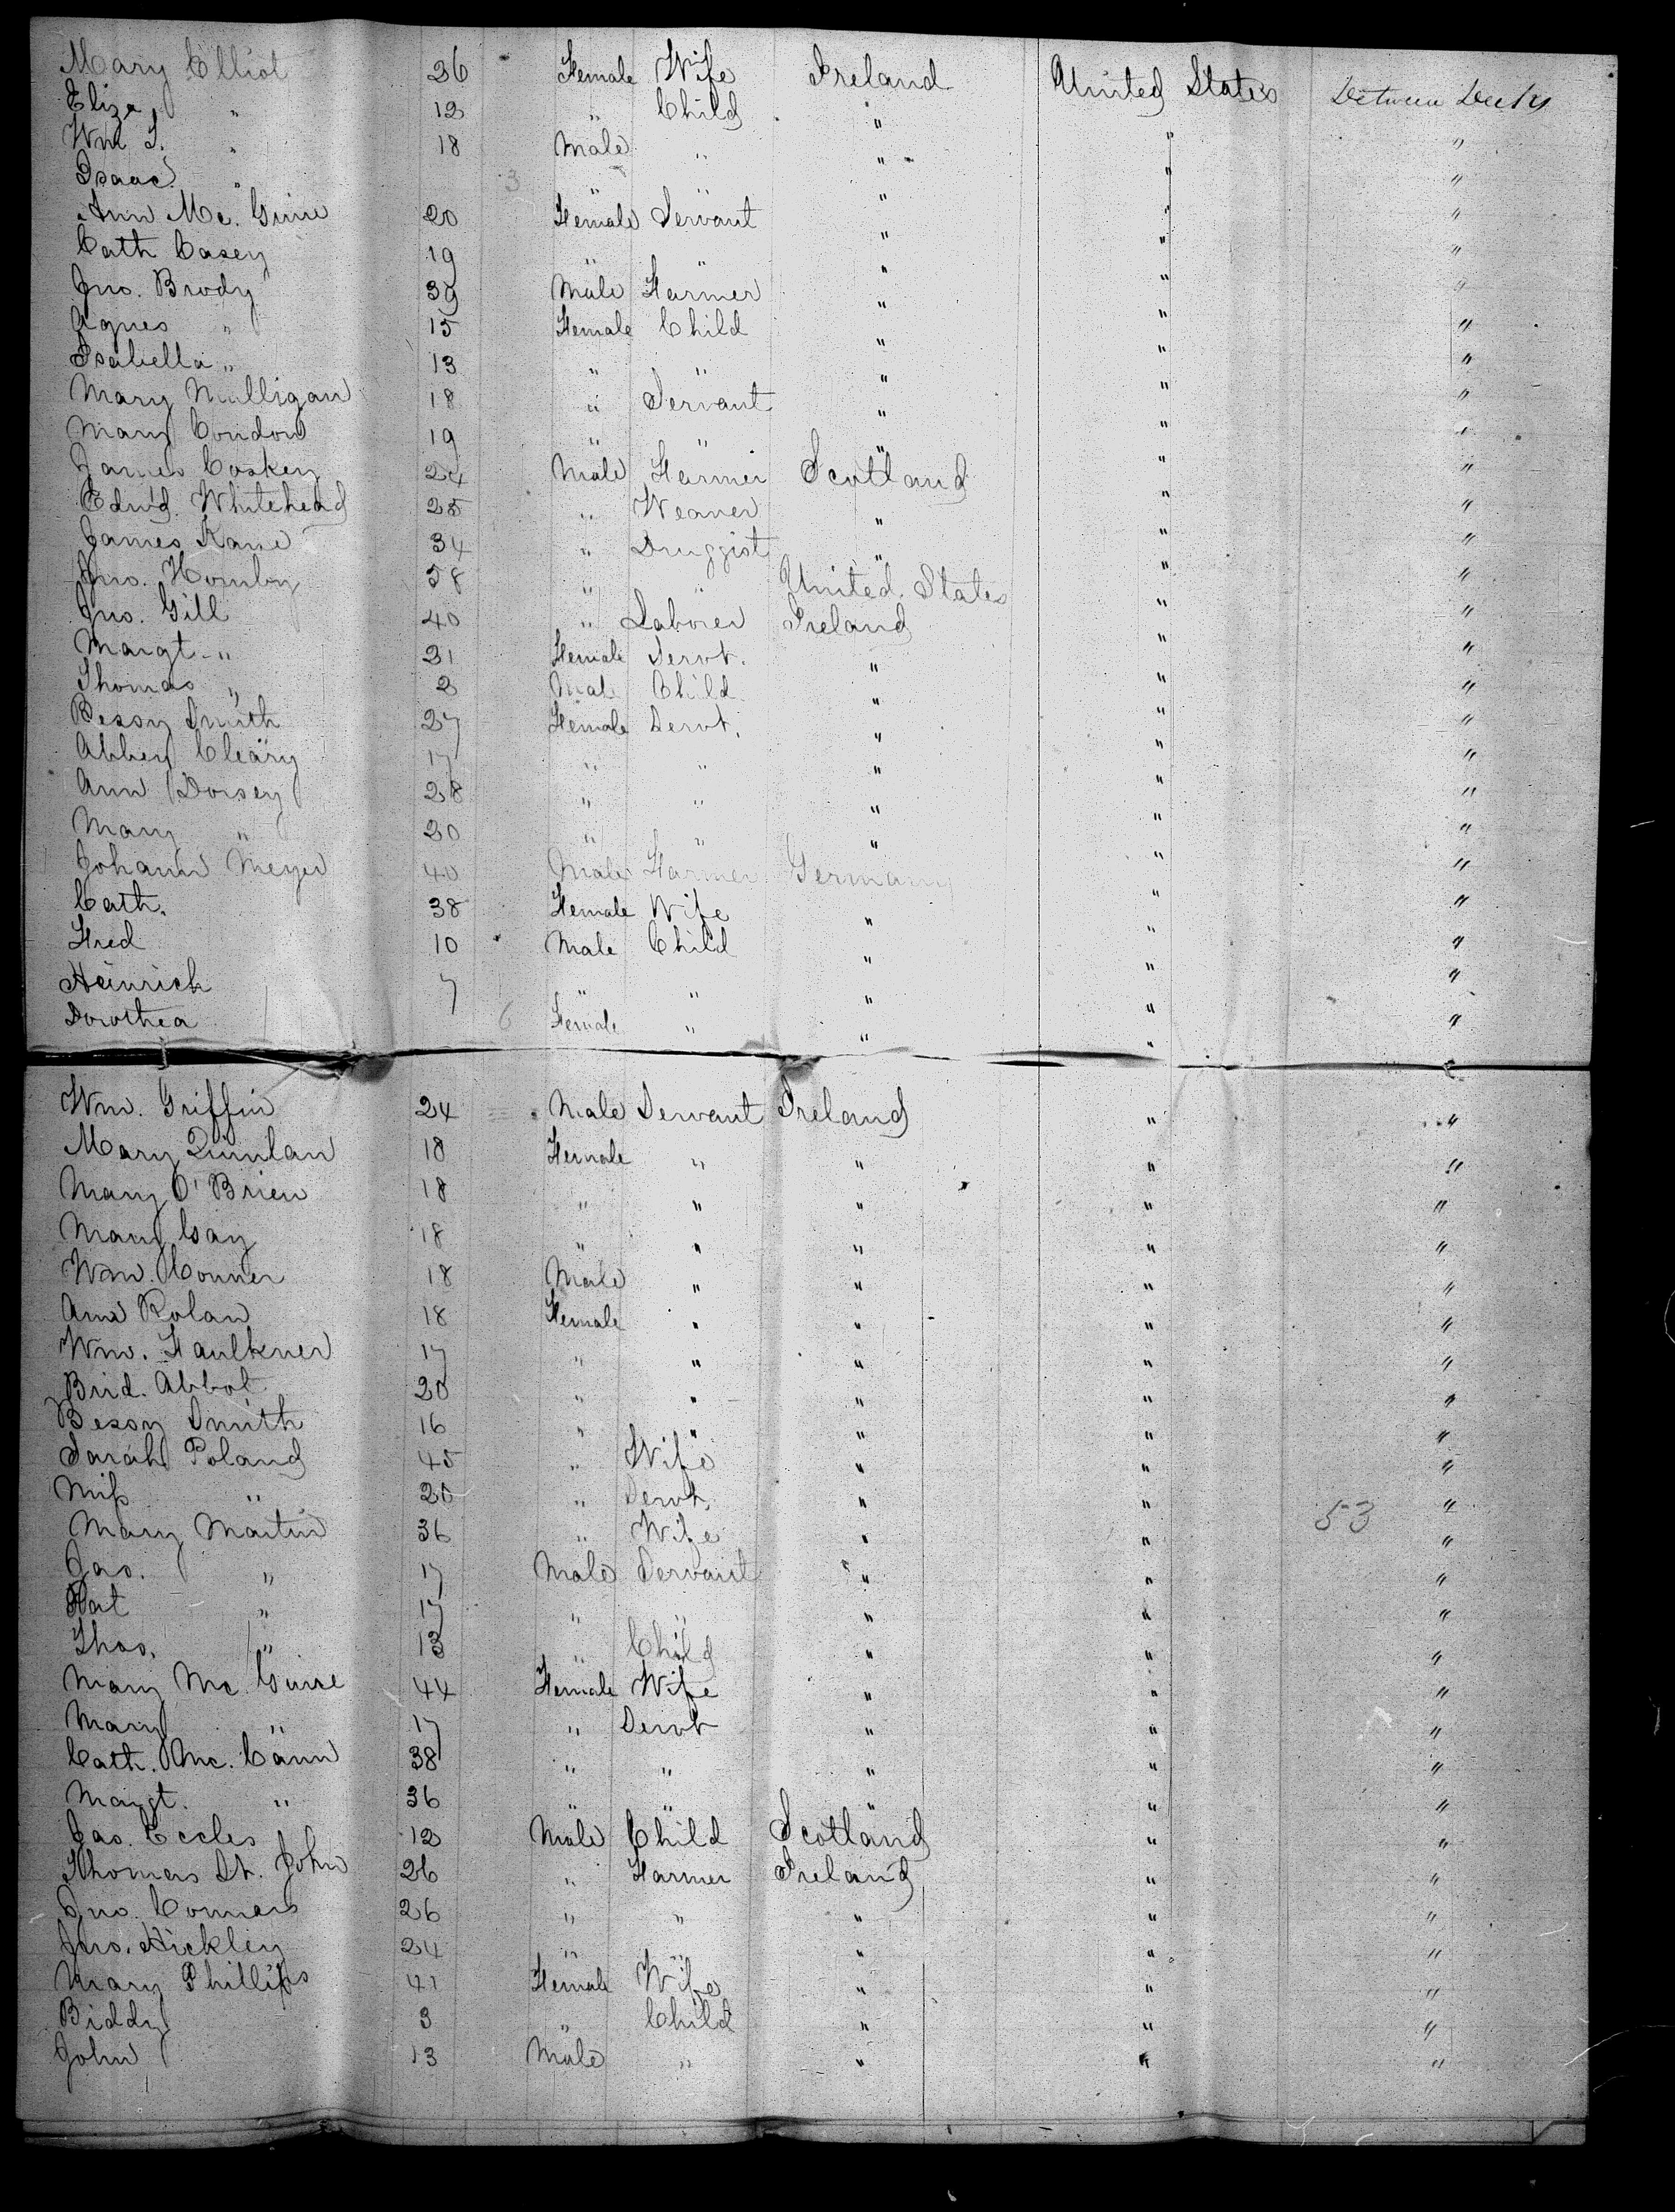 Mary Elliot 36 Female Wife Ireland United States Between Decks
Eliza " 12 " Child " " "
Wm J. " 18 Male " " " "
Isaac " 3 " " " " "
Ann Mc. Guire 20 Female Servant " " "
Cath Casey 19 " " " " "
Jno. Brody 39 Male Farmer " " "
Agnes " 15 Female Child " " "
Isabella " 13 " " " " "
Mary Mulligan 18 " Servant " " "
Mary Condon 19 " " " " "
James Coskery 24 Male Farmer Scotland " "
Edw'd. Whitehead 25 " Weaver " " "
James Kane 34 " Druggist " " "
Jno. Hornby 58 " " United States " "
Jno. Gill 40 " Laborer Ireland " "
Margt. " 31 Female Servt. " " "
Thomas " 2 Male Child " " "
Bessy Smith 27 Female Servt. " " "
Abbey Cleary 17 " " " " "
Ann Dorsey 28 " " " " "
Mary " 20 " " " " "
Johann Meyer 40 Male Farmer Germany " "
Cath. 38 Female Wife " " "
Fred 10 Male Child " " "
Heinrich 7 " " " " "
Dorothea 6 Female " " " "
Wm. Griffin 24 Male Servant Ireland " "
Mary Quinlan 18 Female " " " "
Mary O'Brien 18 " " " " "
Mary Gay 18 " " " " "
Wm. Conner 18 Male " " " "
Ann Rolan 18 Female " " " "
Wm. Faulkner 17 " " " " "
Brid. Abbot 20 " " " " "
Bessy Smith 16 " " " " "
Sarah Poland 45 " Wife " " "
Miss " 20 " Servt. " " 53 "
Mary Martin 36 " Wife " " "
Jas. " 17 Male Servant " " "
Pat " 17 " " " " "
Thos. " 13 " Child " " "
Mary Mc. Guire 44 Female Wife " " "
Mary " 17 " Servt " " "
Cath. Mc. Cann 38 " " " " "
Margt. " 36 " " " " "
Jas. Eccles 12 Male Child Scotland " "
Thomas St. John 26 " Farmer Ireland " "
Jno. Connors 26 " " " " "
Jno. Hickley 24 " " " " "
Mary Phillips 41 Female Wife " " "
Biddy 3 " Child " " "
John 13 Male " " " "